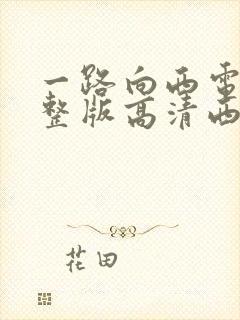 一路向西电
整版高清西
花田